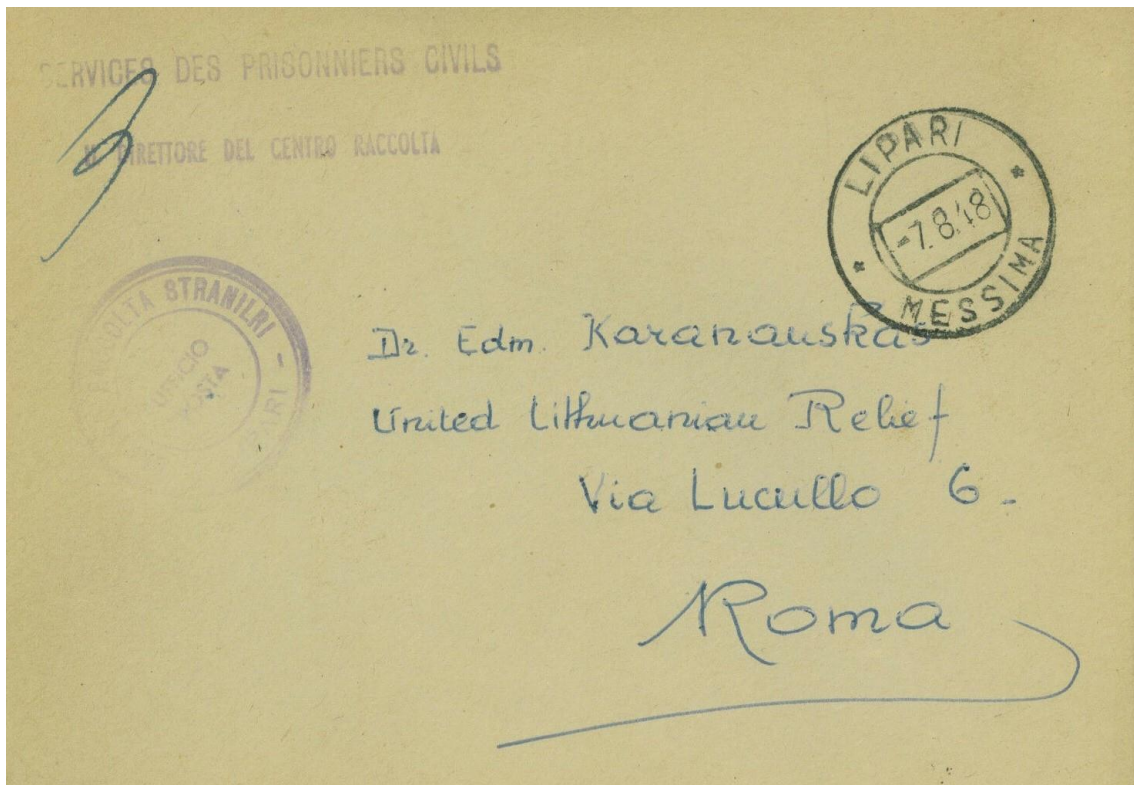 SERVICES DES PRISONNIERS CIVILS
IL DIRETTORE DEL CENTRO RACCOLTA
LIPARI
-7.8.48
MESSIMA
COLTA STRANILRI - ARI
UFFICIO
POSTA
Dr. Edm. Karanauskas
United Lithuanian Relief
Via Lucullo 6.-
Roma